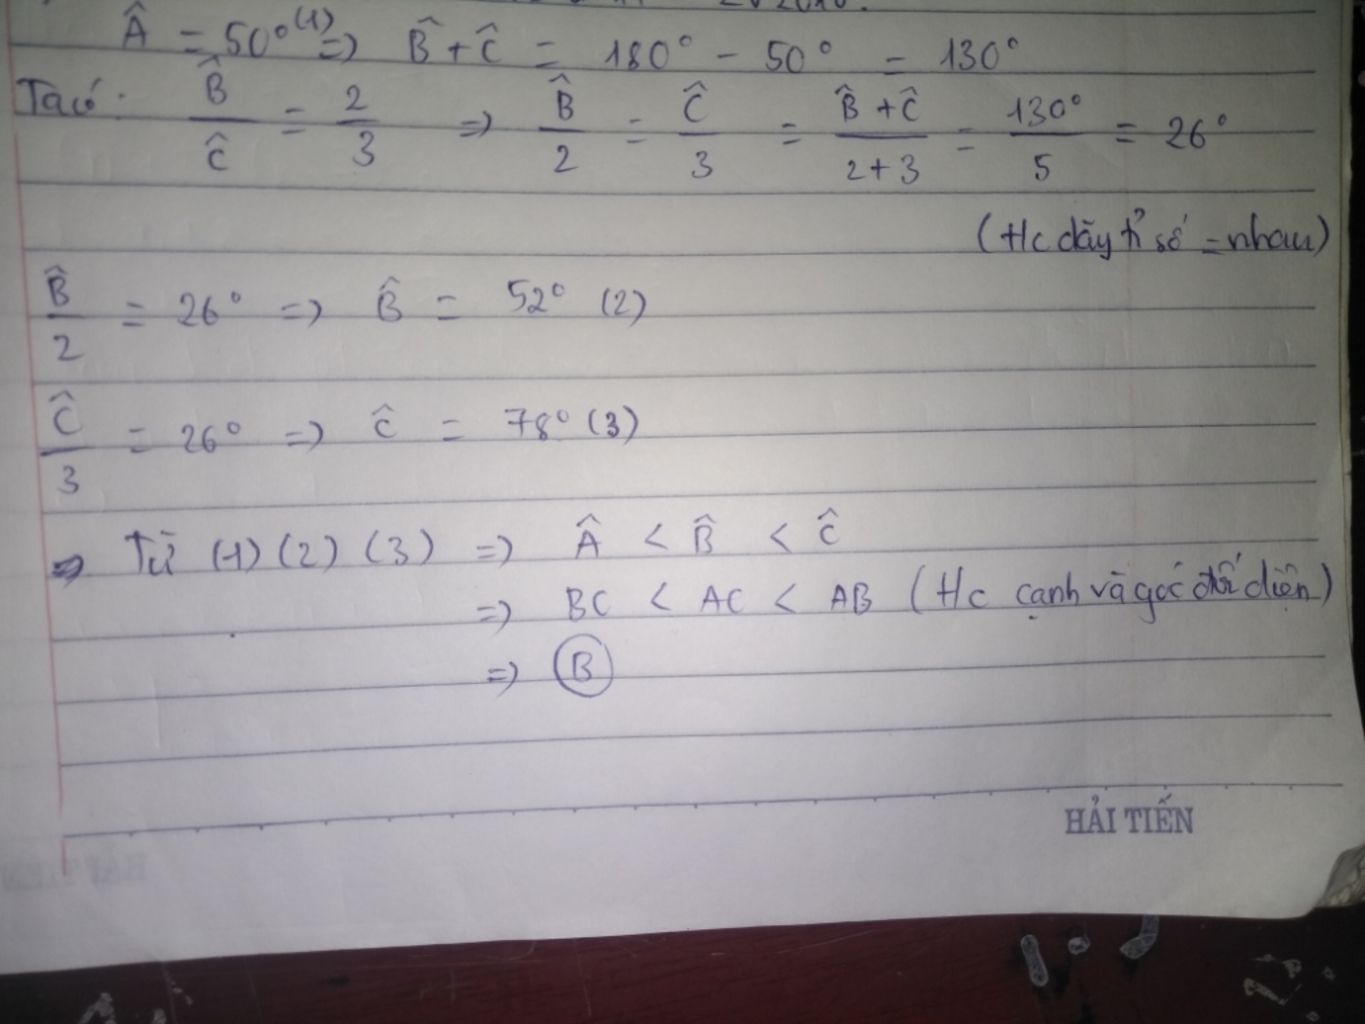 Â = 50° (1) => B̂ + Ĉ = 180° - 50° = 130°
Ta có: B̂/Ĉ = 2/3 => B̂/2 = Ĉ/3 = (B̂ + Ĉ)/(2+3) = 130°/5 = 26°
(Hc dãy tỉ số = nhau)
B̂/2 = 26° => B̂ = 52° (2)
Ĉ/3 = 26° => Ĉ = 78° (3)
=> Từ (1) (2) (3) => Â < B̂ < Ĉ
=> BC < AC < AB (Hc cạnh và góc đối diện)
=> B
HẢI TIẾN